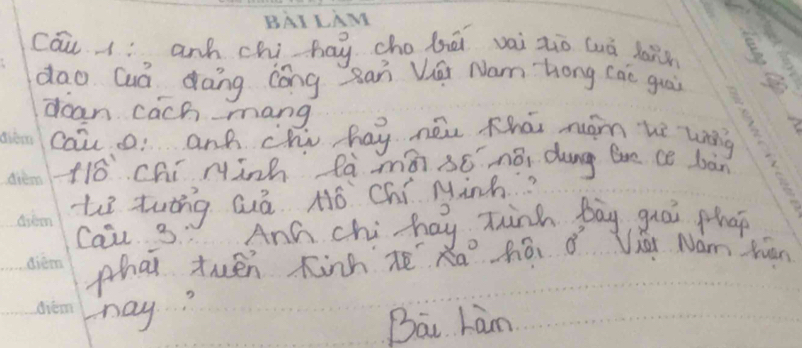 BÀI LÀM
Câu 1: anh chị hãy cho biết vai trò của lãnh
đạo của đảng cộng sản Việt Nam trong các giai
đoạn cách mạng
điểm Câu 2: anh chị hãy nêu khái niệm tư tưởng
điểm Hồ Chí Minh là một số nội dung cơ bản
điểm tư tưởng của Hồ Chí Minh?
Câu 3: Anh chị hãy trình bày giải pháp
điểm phát triển kinh tế xã hội ở Việt Nam hiện
điểm nay?
Bài Làm